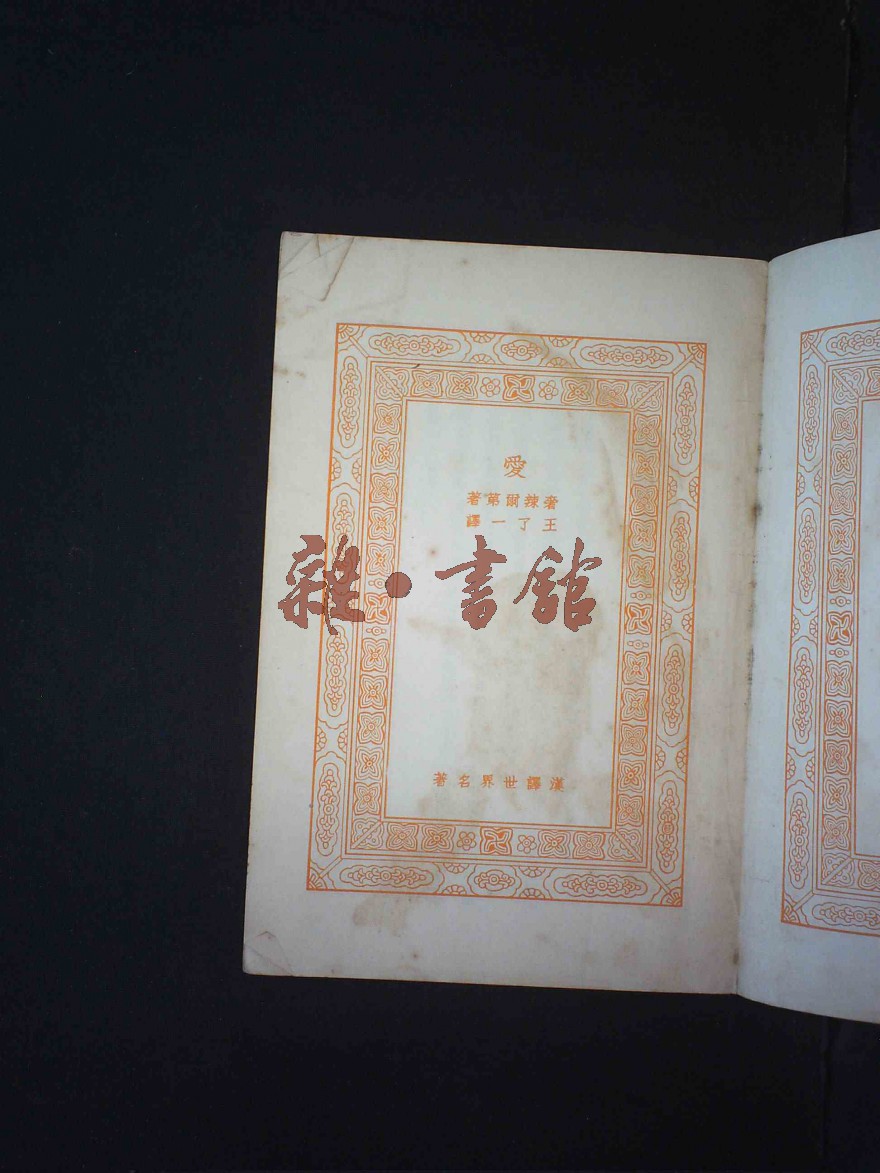 愛
著第爾辣奢
譯一了王
雜·書館
著名界世譯漢